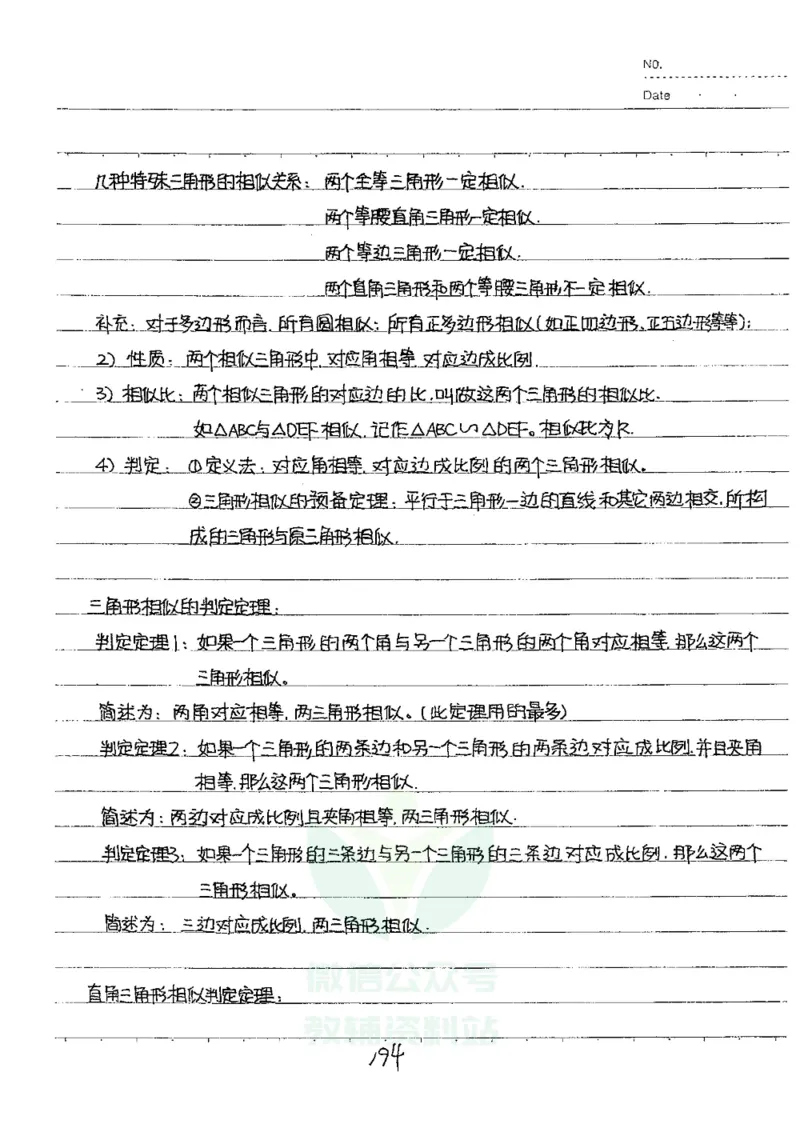 NO.
Date
几种特殊三角形的相似关系：两个全等三角形一定相似.
两个等腰直角三角形一定相似.
两个等边三角形一定相似.
两个直角三角形和两个等腰三角形不一定相似.
补充：对于多边形而言，所有圆相似；所有正多边形相似（如正四边形、正五边形等等）；
2）性质：两个相似三角形中，对应角相等，对应边成比例.
3）相似比：两个相似三角形的对应边的比，叫做这两个三角形的相似比.
如△ABC与△DEF相似，记作△ABC∽△DEF。相似比为k.
4）判定：①定义法：对应角相等，对应边成比例的两个三角形相似。
②三角形相似的预备定理：平行于三角形一边的直线和其它两边相交，所构
成的三角形与原三角形相似.
三角形相似的判定定理：
判定定理1：如果一个三角形的两个角与另一个三角形的两个角对应相等，那么这两个
三角形相似。
简述为：两角对应相等，两三角形相似。（此定理用的最多）
判定定理2：如果一个三角形的两条边和另一个三角形的两条边对应成比例，并且夹角
相等，那么这两个三角形相似.
简述为：两边对应成比例且夹角相等，两三角形相似.
判定定理3：如果一个三角形的三条边与另一个三角形的三条边对应成比例，那么这两个
三角形相似。
简述为：三边对应成比例，两三角形相似.
微信公众号
直角三角形相似判定定理：
教辅资料站
194